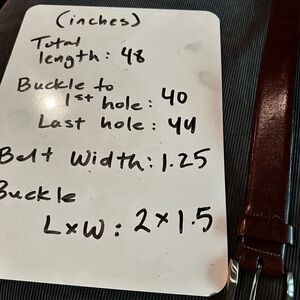 (inches)
Total
length: 48
Buckle to
1st hole: 40
Last hole: 44
Belt Width: 1.25
Buckle
LxW: 2x1.5